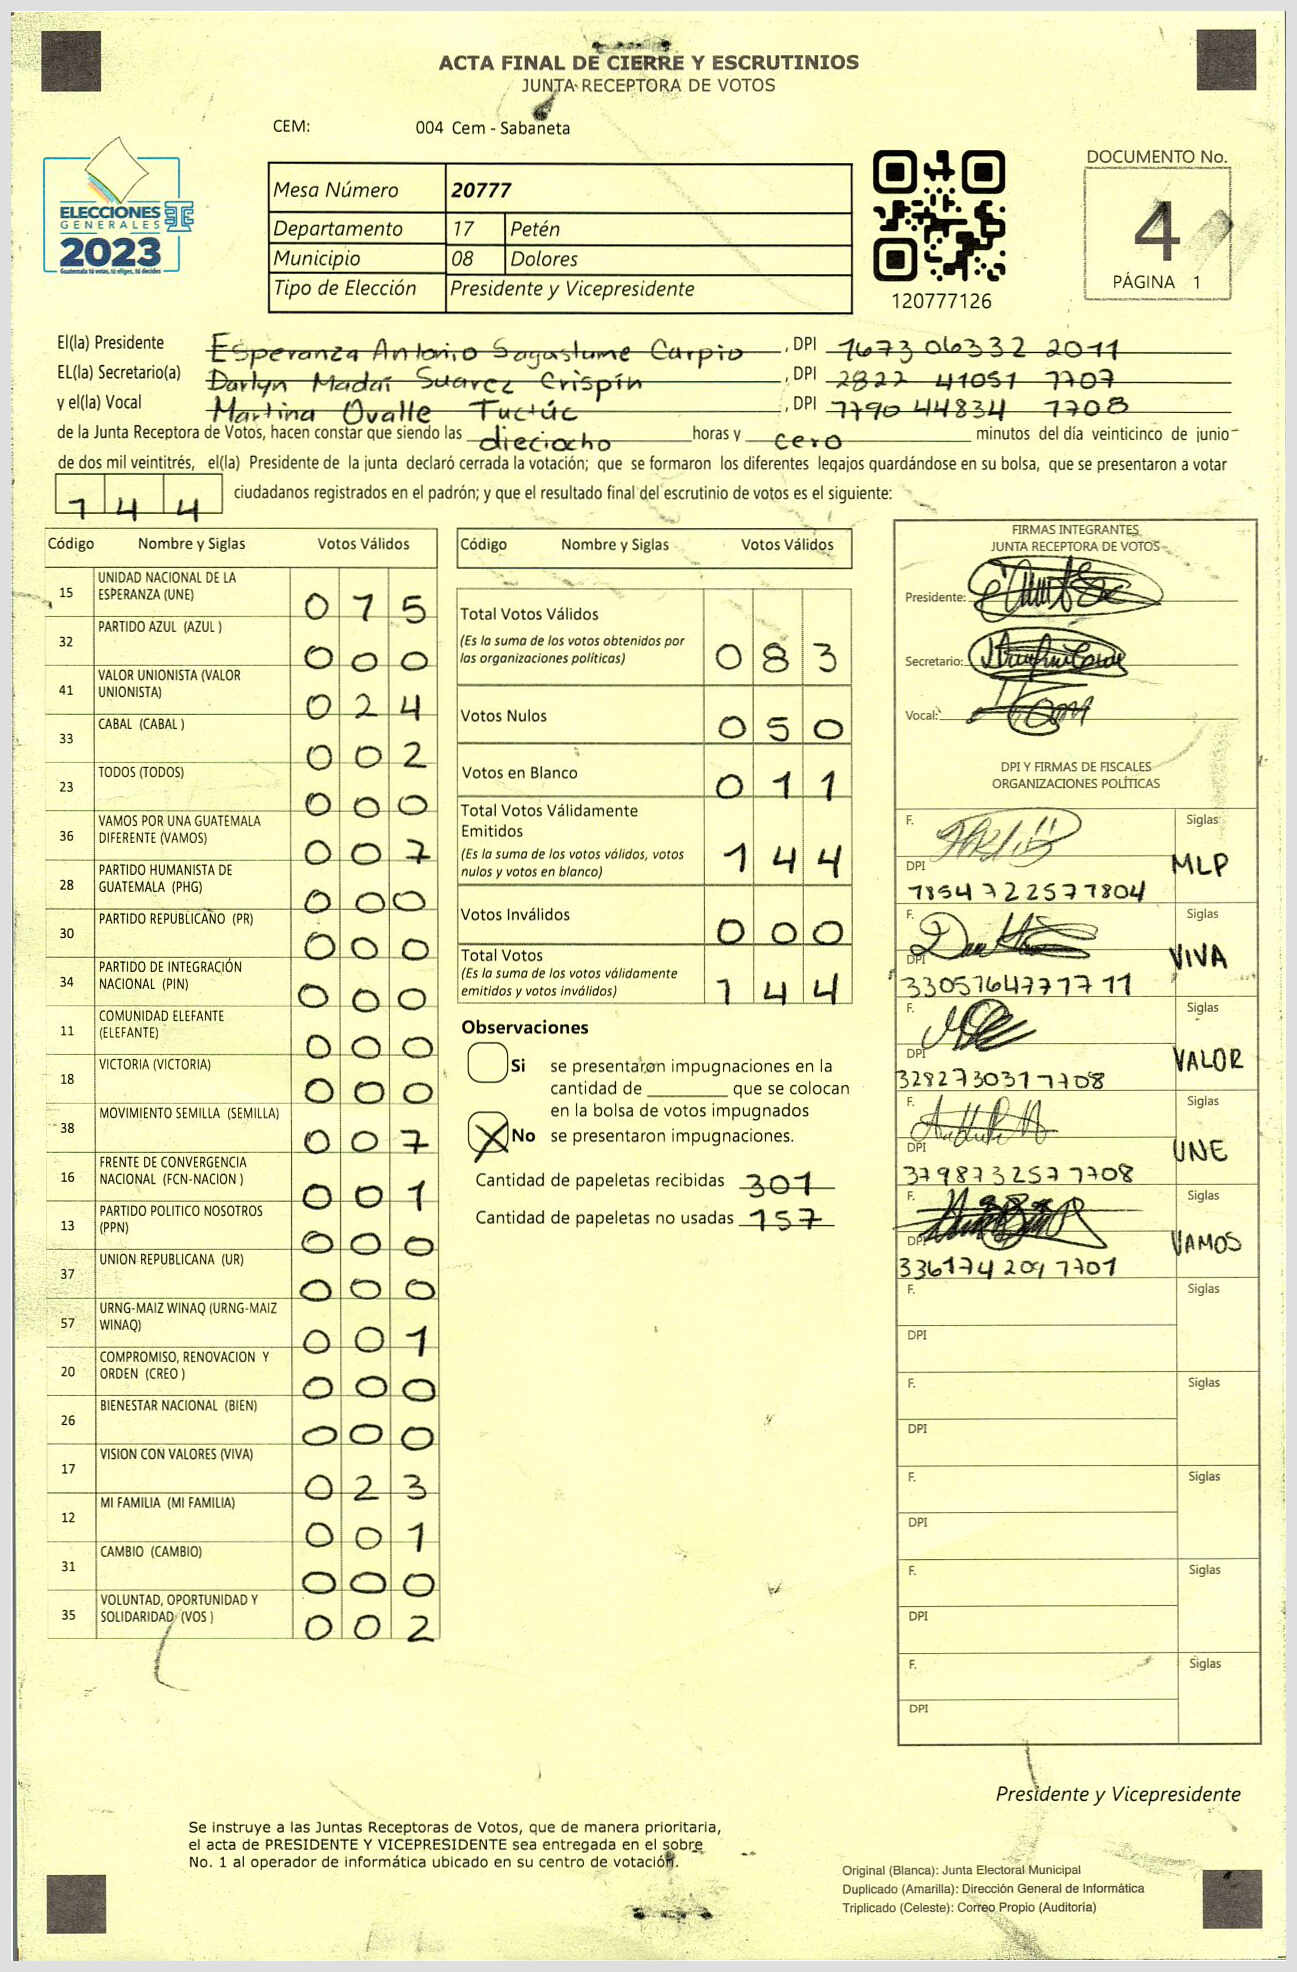 ACTA FINAL DE CIERRE Y ESCRUTINIOS
JUNTA RECEPTORA DE VOTOS
CEM: 004 Cem - Sabaneta
ELECCIONES
GENERALES
2023
Guatemala tú votas, tú eliges, tú decides
Mesa Número 20777
Departamento 17 Petén
Municipio 08 Dolores
Tipo de Elección Presidente y Vicepresidente
120777126
DOCUMENTO No.
4
PÁGINA 1
El(la) Presidente Esperanza Antonio Sagastume Carpio, DPI 1673 06332 2011
EL(la) Secretario(a) Darlyn Madaí Suarez Crispín, DPI 2822 41051 1707
y el(la) Vocal Martina Ovalle Tuctúc, DPI 1790 44834 1708
de la Junta Receptora de Votos, hacen constar que siendo las dieciocho horas y cero minutos del día veinticinco de junio
de dos mil veintitrés, el(la) Presidente de la junta declaró cerrada la votación; que se formaron los diferentes legajos guardándose en su bolsa, que se presentaron a votar
144 ciudadanos registrados en el padrón; y que el resultado final del escrutinio de votos es el siguiente:
Código Nombre y Siglas Votos Válidos
15 UNIDAD NACIONAL DE LA
ESPERANZA (UNE) 015
32 PARTIDO AZUL (AZUL ) 000
41 VALOR UNIONISTA (VALOR
UNIONISTA) 024
33 CABAL (CABAL ) 002
23 TODOS (TODOS) 000
36 VAMOS POR UNA GUATEMALA
DIFERENTE (VAMOS) 007
28 PARTIDO HUMANISTA DE
GUATEMALA (PHG) 000
30 PARTIDO REPUBLICANO (PR) 000
34 PARTIDO DE INTEGRACIÓN
NACIONAL (PIN) 000
11 COMUNIDAD ELEFANTE
(ELEFANTE) 000
18 VICTORIA (VICTORIA) 000
38 MOVIMIENTO SEMILLA (SEMILLA) 007
16 FRENTE DE CONVERGENCIA
NACIONAL (FCN-NACION ) 001
13 PARTIDO POLITICO NOSOTROS
(PPN) 000
37 UNION REPUBLICANA (UR) 000
57 URNG-MAIZ WINAQ (URNG-MAIZ
WINAQ) 001
20 COMPROMISO, RENOVACION Y
ORDEN (CREO ) 000
26 BIENESTAR NACIONAL (BIEN) 000
17 VISION CON VALORES (VIVA) 023
12 MI FAMILIA (MI FAMILIA) 001
31 CAMBIO (CAMBIO) 000
35 VOLUNTAD, OPORTUNIDAD Y
SOLIDARIDAD (VOS ) 002
Código Nombre y Siglas Votos Válidos
Total Votos Válidos
(Es la suma de los votos obtenidos por
las organizaciones políticas) 083
Votos Nulos 050
Votos en Blanco 011
Total Votos Válidamente
Emitidos
(Es la suma de los votos válidos, votos
nulos y votos en blanco) 144
Votos Inválidos 000
Total Votos
(Es la suma de los votos válidamente
emitidos y votos inválidos) 144
Observaciones
Si se presentaron impugnaciones en la
cantidad de ________ que se colocan
en la bolsa de votos impugnados
No se presentaron impugnaciones.
Cantidad de papeletas recibidas 301
Cantidad de papeletas no usadas 157
FIRMAS INTEGRANTES
JUNTA RECEPTORA DE VOTOS
Presidente:
Secretario:
Vocal:
DPI Y FIRMAS DE FISCALES
ORGANIZACIONES POLÍTICAS
F. Siglas
MLP
DPI
1854722571804
F. Siglas
VIVA
DPI
3305764771711
F. Siglas
VALOR
DPI
3282730311708
F. Siglas
UNE
DPI
3798732571708
F. Siglas
VAMOS
DPI
3361742091701
F. Siglas
DPI
F. Siglas
DPI
F. Siglas
DPI
F. Siglas
DPI
F. Siglas
DPI
Presidente y Vicepresidente
Se instruye a las Juntas Receptoras de Votos, que de manera prioritaria,
el acta de PRESIDENTE Y VICEPRESIDENTE sea entregada en el sobre
No. 1 al operador de informática ubicado en su centro de votación.
Original (Blanca): Junta Electoral Municipal
Duplicado (Amarilla): Dirección General de Informática
Triplicado (Celeste): Correo Propio (Auditoría)